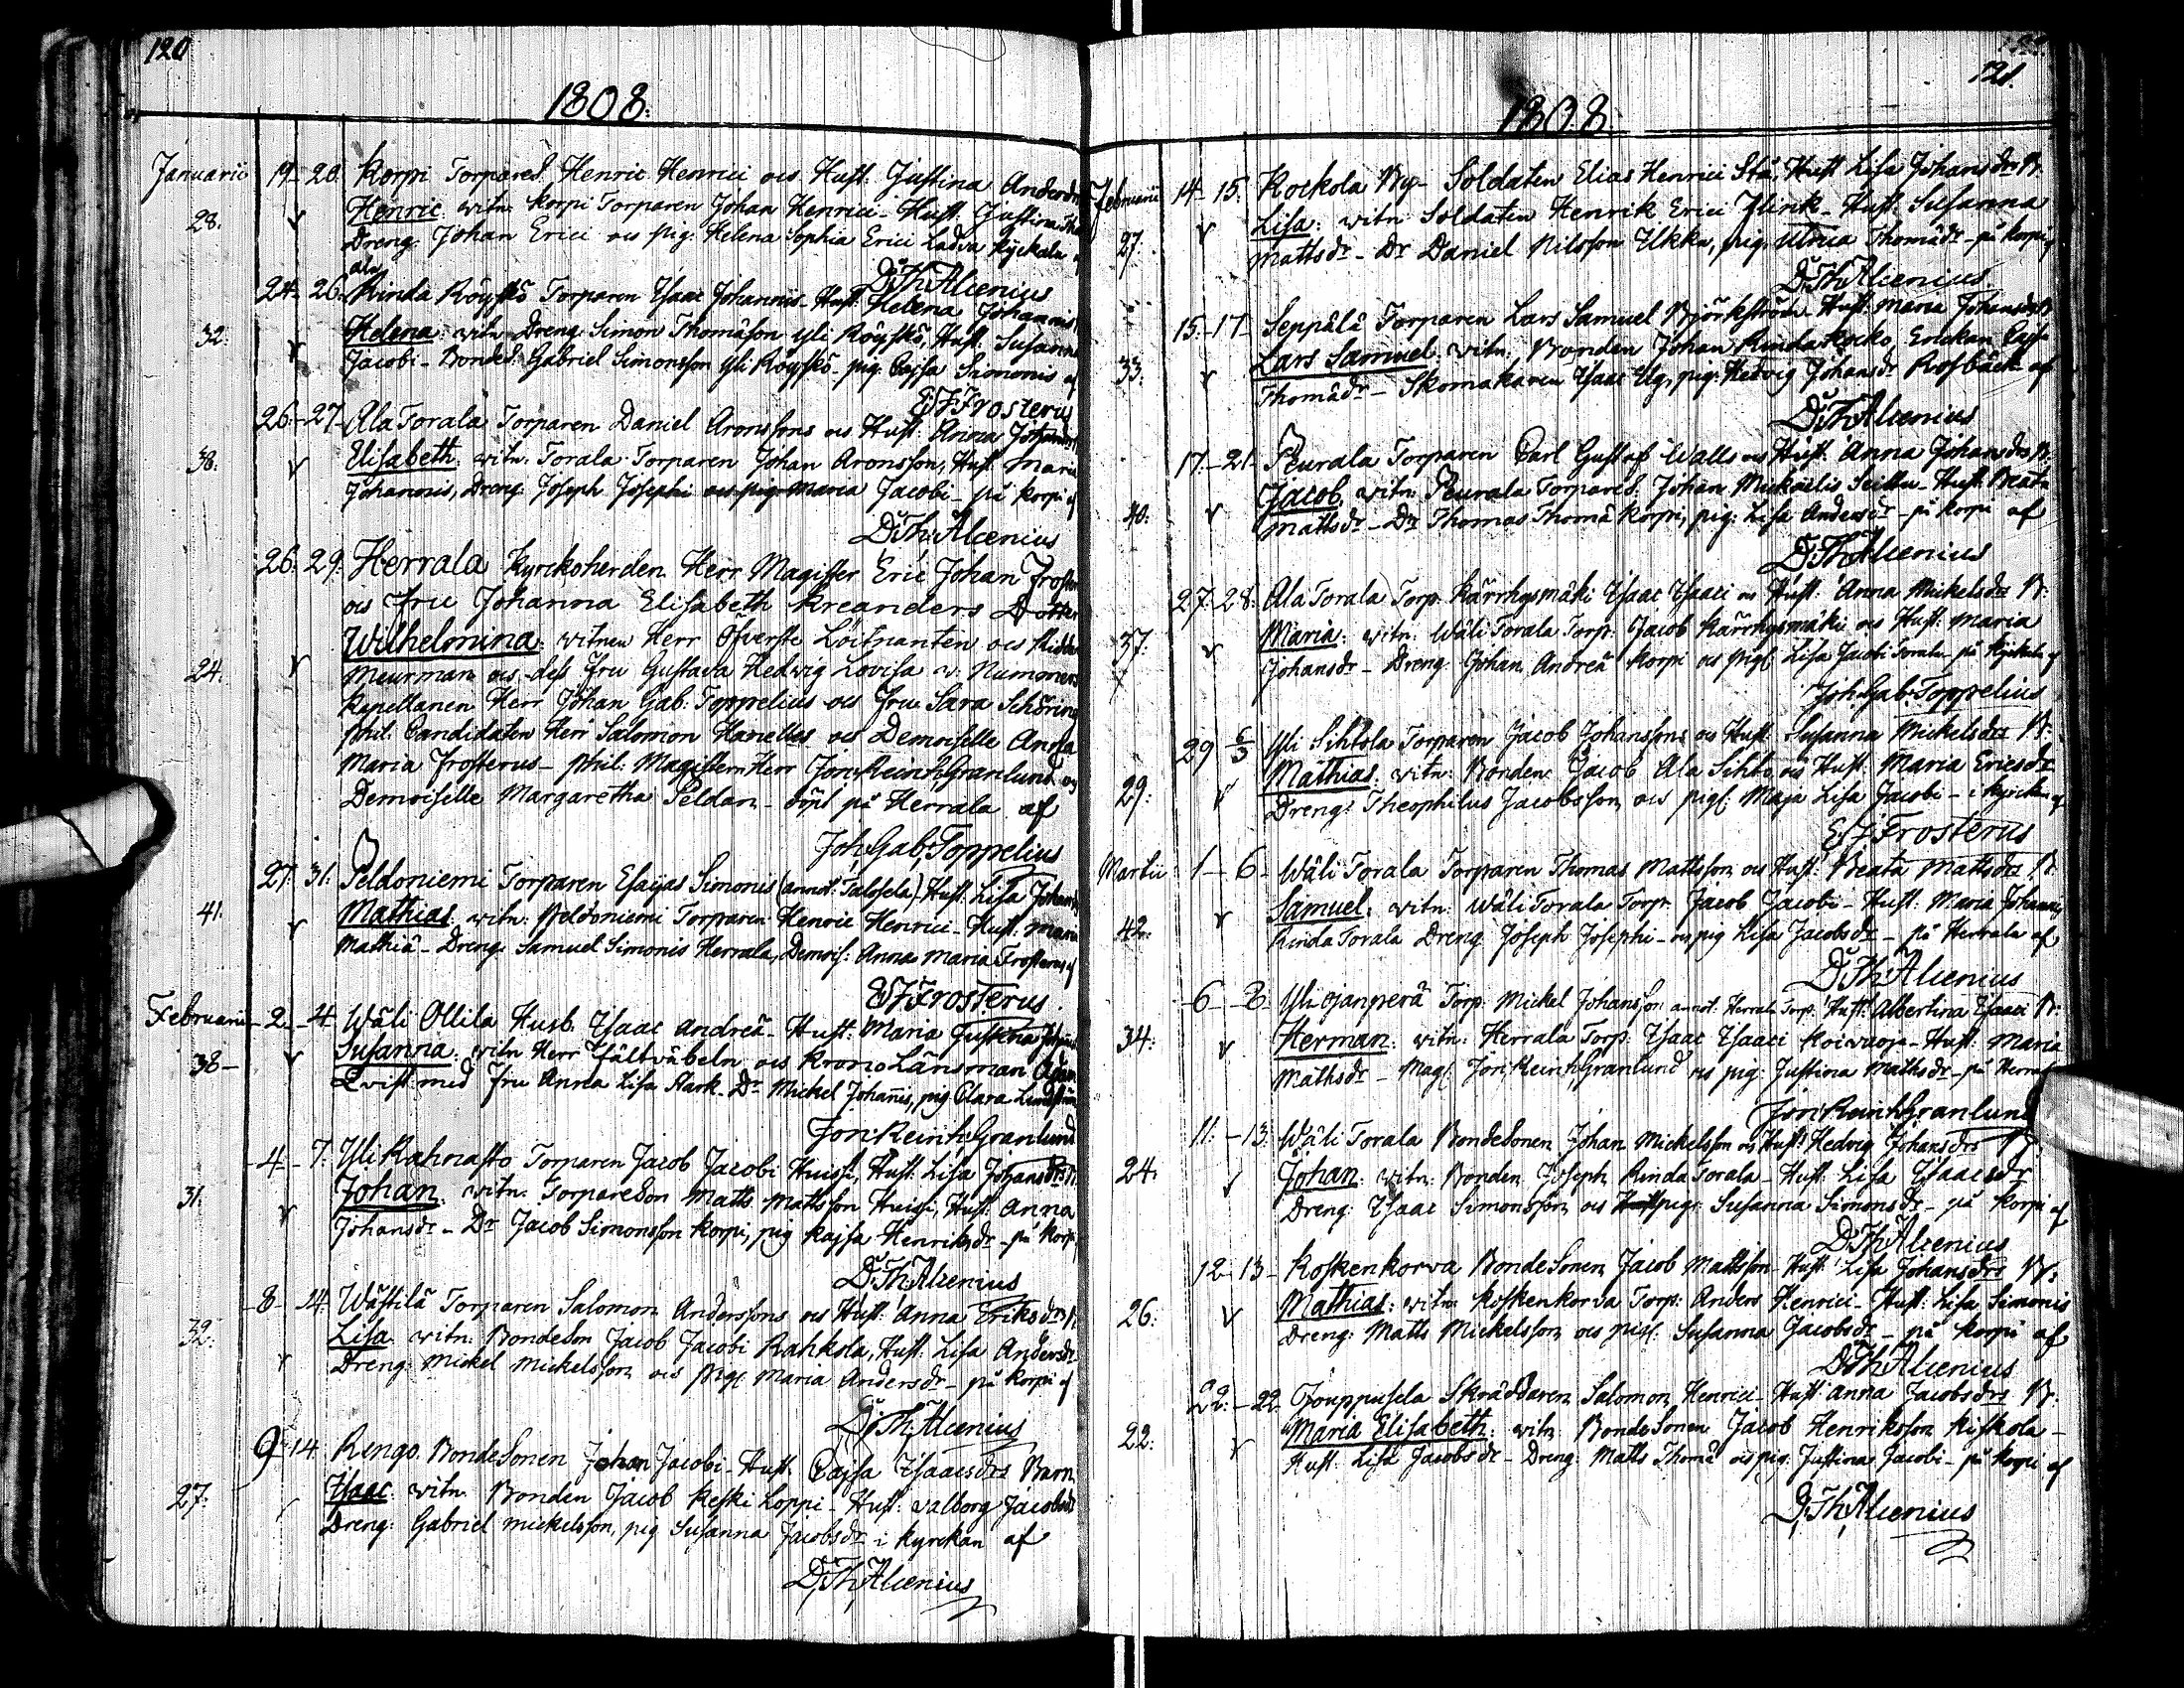 120
1808.
Januarii 19-20. Korpi Torpared. Henric Henrici ocs Hust. Justina Andersdr
28. Henric: witn: Korpi Torparen Johan Henrici - Hust. Justina
Dreng. Johan Erici ocs pig. Helena Sophia Erici Ladva Kyckala
D: Th: Alcenius
24-26. Ala Rinda Röyskö Torparen Isaac Johannis - Hust. Helena Johannis
32: Helena: witn: Dreng Simon Thomæson Yli Röyskö, Hust. Susanna
Jacobi - Bondes. Gabriel Simonsson Yli Röyskö - pig. Cajsa Simonis af
E: J: Frosterus
26-27- Ala Torala Torparen Daniel Aronssons ocs Hust. Anna Johansdr
38: Elisabeth: witn: Torala Torparen Johan Aronsson, Hust. Maria
Johannis, Dreng Joseph Josephi ocs pig. Maria Jacobi - på Korpi af
D: Th: Alcenius
26: 29: Herrala Kyrckoherden Herr Magister Eric Johan Frosterus
ocs Fru Johanna Elisabeth Kreanders Dotter
Wilhelmina: witnen Herr Öfverste Löitnanten ocs Riddar
24: Meurman ocs dess Fru Gustava Hedvig Lovisa v: Numoners
Kapellanen Herr Johan Gab: Toppelius ocs Fru Sara Schöring
Phil. Candidaten Herr Salomon Hanelles ocs Demoiselle Anna
Maria Frosterus - Phil: Magistern Herr Jon: Reinh: Granlund ocs
Demoiselle Margaretha Peldan - döpt på Herrala af
Joh: Gab: Toppelius
27: 31: Peldoniemi Torparen Esaijas Simonis (annot: Talosela) Hust. Lisa Johans
41: Mathias: witn: Peldoniemi Torparen Henric Henrici - Hust. Maria
Mathiæ - Dreng: Samuel Simonis Herrala, Demois: Anna Maria Frosterus af
E: J: Frosterus.
Februarii - 2 - 4. Wäli Ollila Husb. Isaac Andreæ - Hust: Maria Justina
38 - Susanna: witn Herr Fältväbeln ocs Krono Länsman Adam
Qvist med Fru Anna Lisa Aark - Dr Mickel Johañis, pig Clara Lundström
Jon: Reinh: Granlund
-4-7: Yli Rahnasto Torparen Jacob Jacobi Huissi, Hust: Lisa Johansdrs B:
31. Johan. witn: Torparedon Matts Mattsson Huissi, Hust. Anna
Johansdr - Dr Jacob Simonsson Korpi, pig Kajsa Henriksdr - på Korpi
D: Th: Alcenius
-8- 14: Wästilä Torparen Salomon Anderssons ocs Hust: Anna Eriksdrs B:
32: Lisa. witn: BondeSon Jacob Jacobi Rahkola, Hust. Lisa Andersdr
Dreng: Mickel Mickelsson ocs Pig: Maria Andersdr - på Korpi af
D: Th: Alcenius
9-14 Rengo. BondeSonen Johan Jacobi - Hust. Cajsa Isaacsdrs Barn
27: Isaac: witn: Bonden Jacob Keski Loppi - Hust. Valborg Jacobsdr
Dreng: Gabriel Mickelsson, pig Susanna Jacobsdr - i Kyrckan af
D: Th: Alcenius
121.
1808.
Februarii 14-15: Kockola By - Soldaten Elias Henrici Stå, Hust Lisa Johansdrs B:
27: Lisa: witn: Soldaten Henrik Erici Flink - Hust: Susanna
Mattsdr - Dr Daniel Nilsson Ukka, pig: Ulrica Thomædr - på Korpi af
D: Th: Alcenius
15-17- Seppälä Torparen Lars Samuel Björkström - Hust: Maria Johansdrs B
33: Lars Samuel: witn: Bonden Johan Rinda Kocko, Enckan Cajs.
Thomædr - Skomakaren Isaac Ulg, pig: Hedvig Johansdr Rosbäck af
D: Th: Alcenius
17-21- Peurala Torparen Carl Gustaf Walls ocs Hust. Anna Johansdrs B:
40: Jacob. witn: Peurala Torpared: Johan Mickaelis Seittu - Hust: Beata
Mattsdr - Dr Thomas Thomæ Korpi, pig: Lisa Andersdr - på Korpi af
D: Th: Alcenius
27-28: Ala Torala Torp: Kärrhysmäki Isaac Isaaci ocs Hust: Anna Mickelsdrs B:
37: Maria: witn: Wäli Torala Torp: Jacob Kärrhysmäki ocs Hust: Maria
Johansdr - Dreng: Johan Andreæ Korpi ocs Pig: Lisa Jacobi Torala - på Kyckala af
Joh: Gab: Toppelius
29 6/3 Yli Sihtola Torparen Jacob Johanssons ocs Hust: Susanna Mickelsdrs B:
29: Mathias: witn: Bonden Jacob Ala Sihto ocs Hust: Maria Ericsdr
Dreng: Theophilus Jacobsson ocs pig: Maja Lisa Jacobi - i Kyrckan af
E: J: Frosterus
Martii 1-6- Wäli Torala Torparen Thomas Mattsson ocs Hust: Beata Mattsdrs B:
42: Samuel. witn: Wäli Torala Torp: Jacob Jacobi - Hust: Maria Johannis
Rinda Torala Dreng Joseph Josephi - ocs pig Lisa Jacobsdr - på Herrala af
D: Th: Alcenius
-6-8- Yli Ojanperä Torp: Mickel Johansson annot. Herrala Torp: Hust: Albertina Isaaci B:
34: Herman: witn: Herrala Torp: Isaac Isaaci Koivuoja - Hust: Maria
Mathsdr - Mag: Jon: Reinh: Granlund ocs pig: Justina Mathsdr - på Herrala
Jon: Reinh: Granlund
11: -13: Wäli Torala BondeSonen Johan Mickelsson ocs Hust: Hedvig Johansdrs B:
24: Johan: witn: Bonden Joseph Rinda Torala - Hust: Lisa Isaacsdr
Dreng: Isaac Simonsson ocs pig: Susanna Simonsdr - på Korpi af
D: Th: Alcenius
12-13- Koskenkorva BondeSonen Jacob Mattsson - Hust: Lisa Johansdrs B:
26: Mathias: witn: Koskenkorva Torp: Anders Henrici - Hust: Lisa Simonis
Dreng: Matts Mickelsson ocs pig: Susanna Jacobsdr - på Korpi af
D: Th: Alcenius
22: -22 Jouppusela Skräddaren Salomon Henrici - Hust: Anna Jacobsdrs B:
22: Maria Elisabeth: witn: BondeSonen Jacob Henriksson Riskola -
Hust: Lisa Jacobsdr - Dreng: Matts Thomæ ocs pig: Justina Jacobi - på Korpi af
D: Th: Alcenius